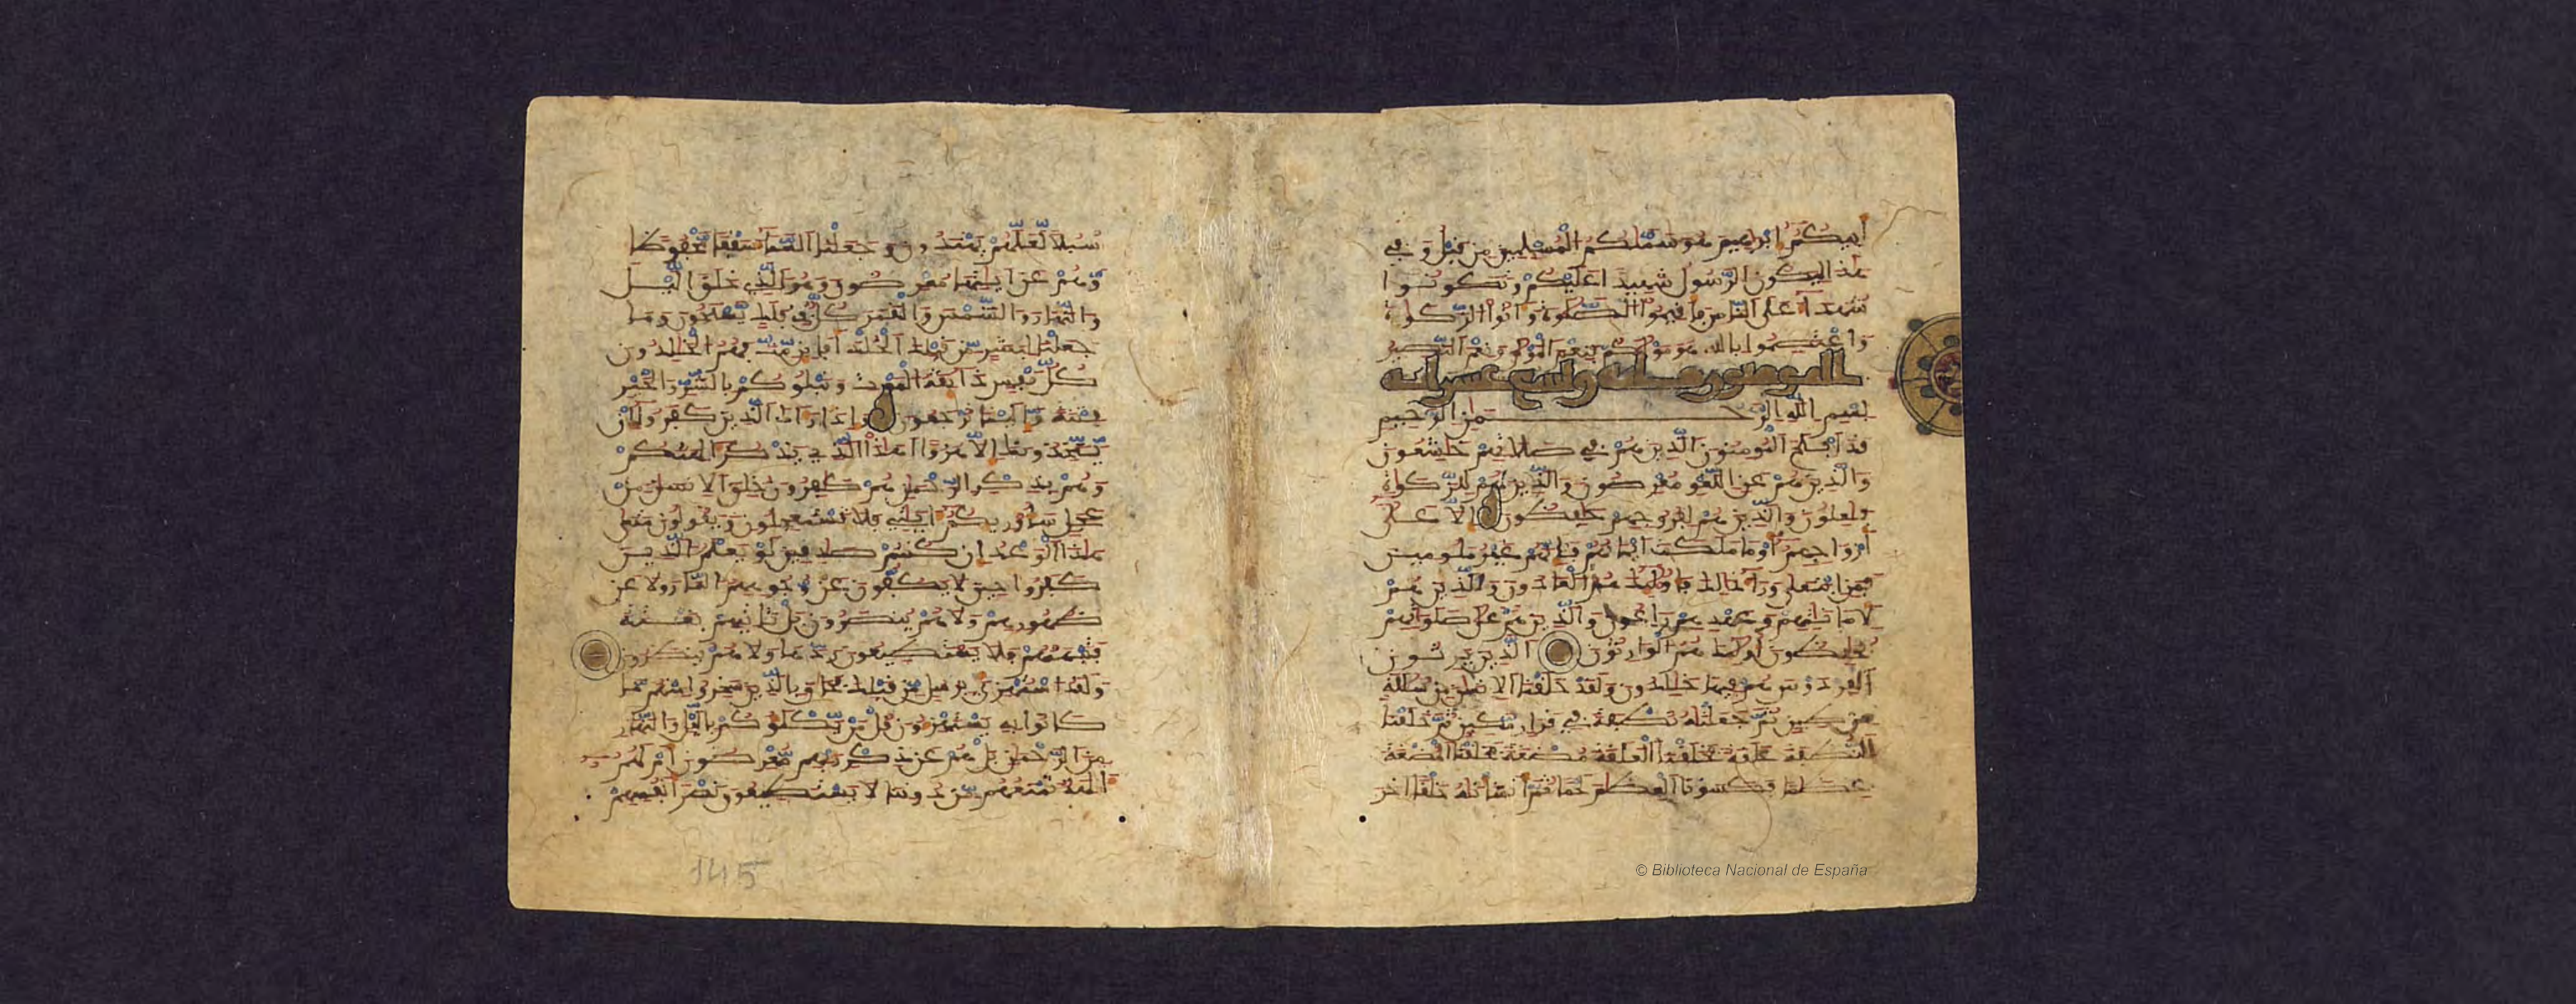 أبيكم إبرهيم هو سميكم المسلمين من قبل وفي
هذا ليكون الرسول شهيدا عليكم وتكونوا
شهدا على الناس فأقيموا الصلوة وآتوا الزكوة
واعتصموا بالله هو موليكم فنعم المولى ونعم النصير
المومنون مائة وتسع عشر اية
بسم الله الرحمن الرحيم
قد أفلح المومنون الذين هم في صلاتهم خشعون
والذين هم عن اللغو معرضون والذين هم للزكوة
فعلون والذين هم لفروجهم حفظون إلا على
أزواجهم أو ما ملكت أيمانهم فإنهم غير ملومين
فمن ابتغى ورآ ذلك فأوليك هم العادون والذين هم
لأماناتهم وعهدهم راعون والذين هم على صلواتهم
يحفظون أوليك هم الوارثون الذين يرثون
الفردوس هم فيها خلدون ولقد خلقنا الانسن من سللة
من طين ثم جعلنه نطفة في قرار مكين ثم خلقنا
النطفة علقة فخلقنا العلقة مضغة فخلقنا المضغة
عظاما فكسونا العظام لحما ثم أنشأنه خلقا آخر
سبلا لعلهم يهتدون وجعلنا السمآ سقفا محفوظا
وهم عن ايتها معرضون وهو الذي خلق اليل
والنهار والشمس والقمر كل في فلك يسبحون وما
جعلنا لبشر من قبلك الخلد أفإين مت فهم الخلدون
كل نفس ذايقة الموت ونبلوكم بالشر والخير
فتنة وإلينا ترجعون وإذا رءاك الذين كفروا إن
يتخذونك إلا هزوا أهذا الذي يذكر الهتكم
وهم بذكر الرحمن هم كفرون خلق الانسن من
عجل سأوريكم ايتي فلا تستعجلون ويقولون متى
هذا الوعد إن كنتم صدقين لو يعلم الذين
كفروا حين لا يكفون عن وجوههم النار ولا عن
ظهورهم ولا هم ينصرون بل تاتيهم بغتة
فتبهتهم فلا يستطيعون ردها ولا هم ينظرون
ولقد استهزي برسل من قبلك فحاق بالذين سخروا منهم ما
كانوا به يستهزءون قل من يكلؤكم باليل والنهار
من الرحمن بل هم عن ذكر ربهم معرضون أم لهم
آلهة تمنعهم من دوننا لا يستطيعون نصر أنفسهم
145
© Biblioteca Nacional de España